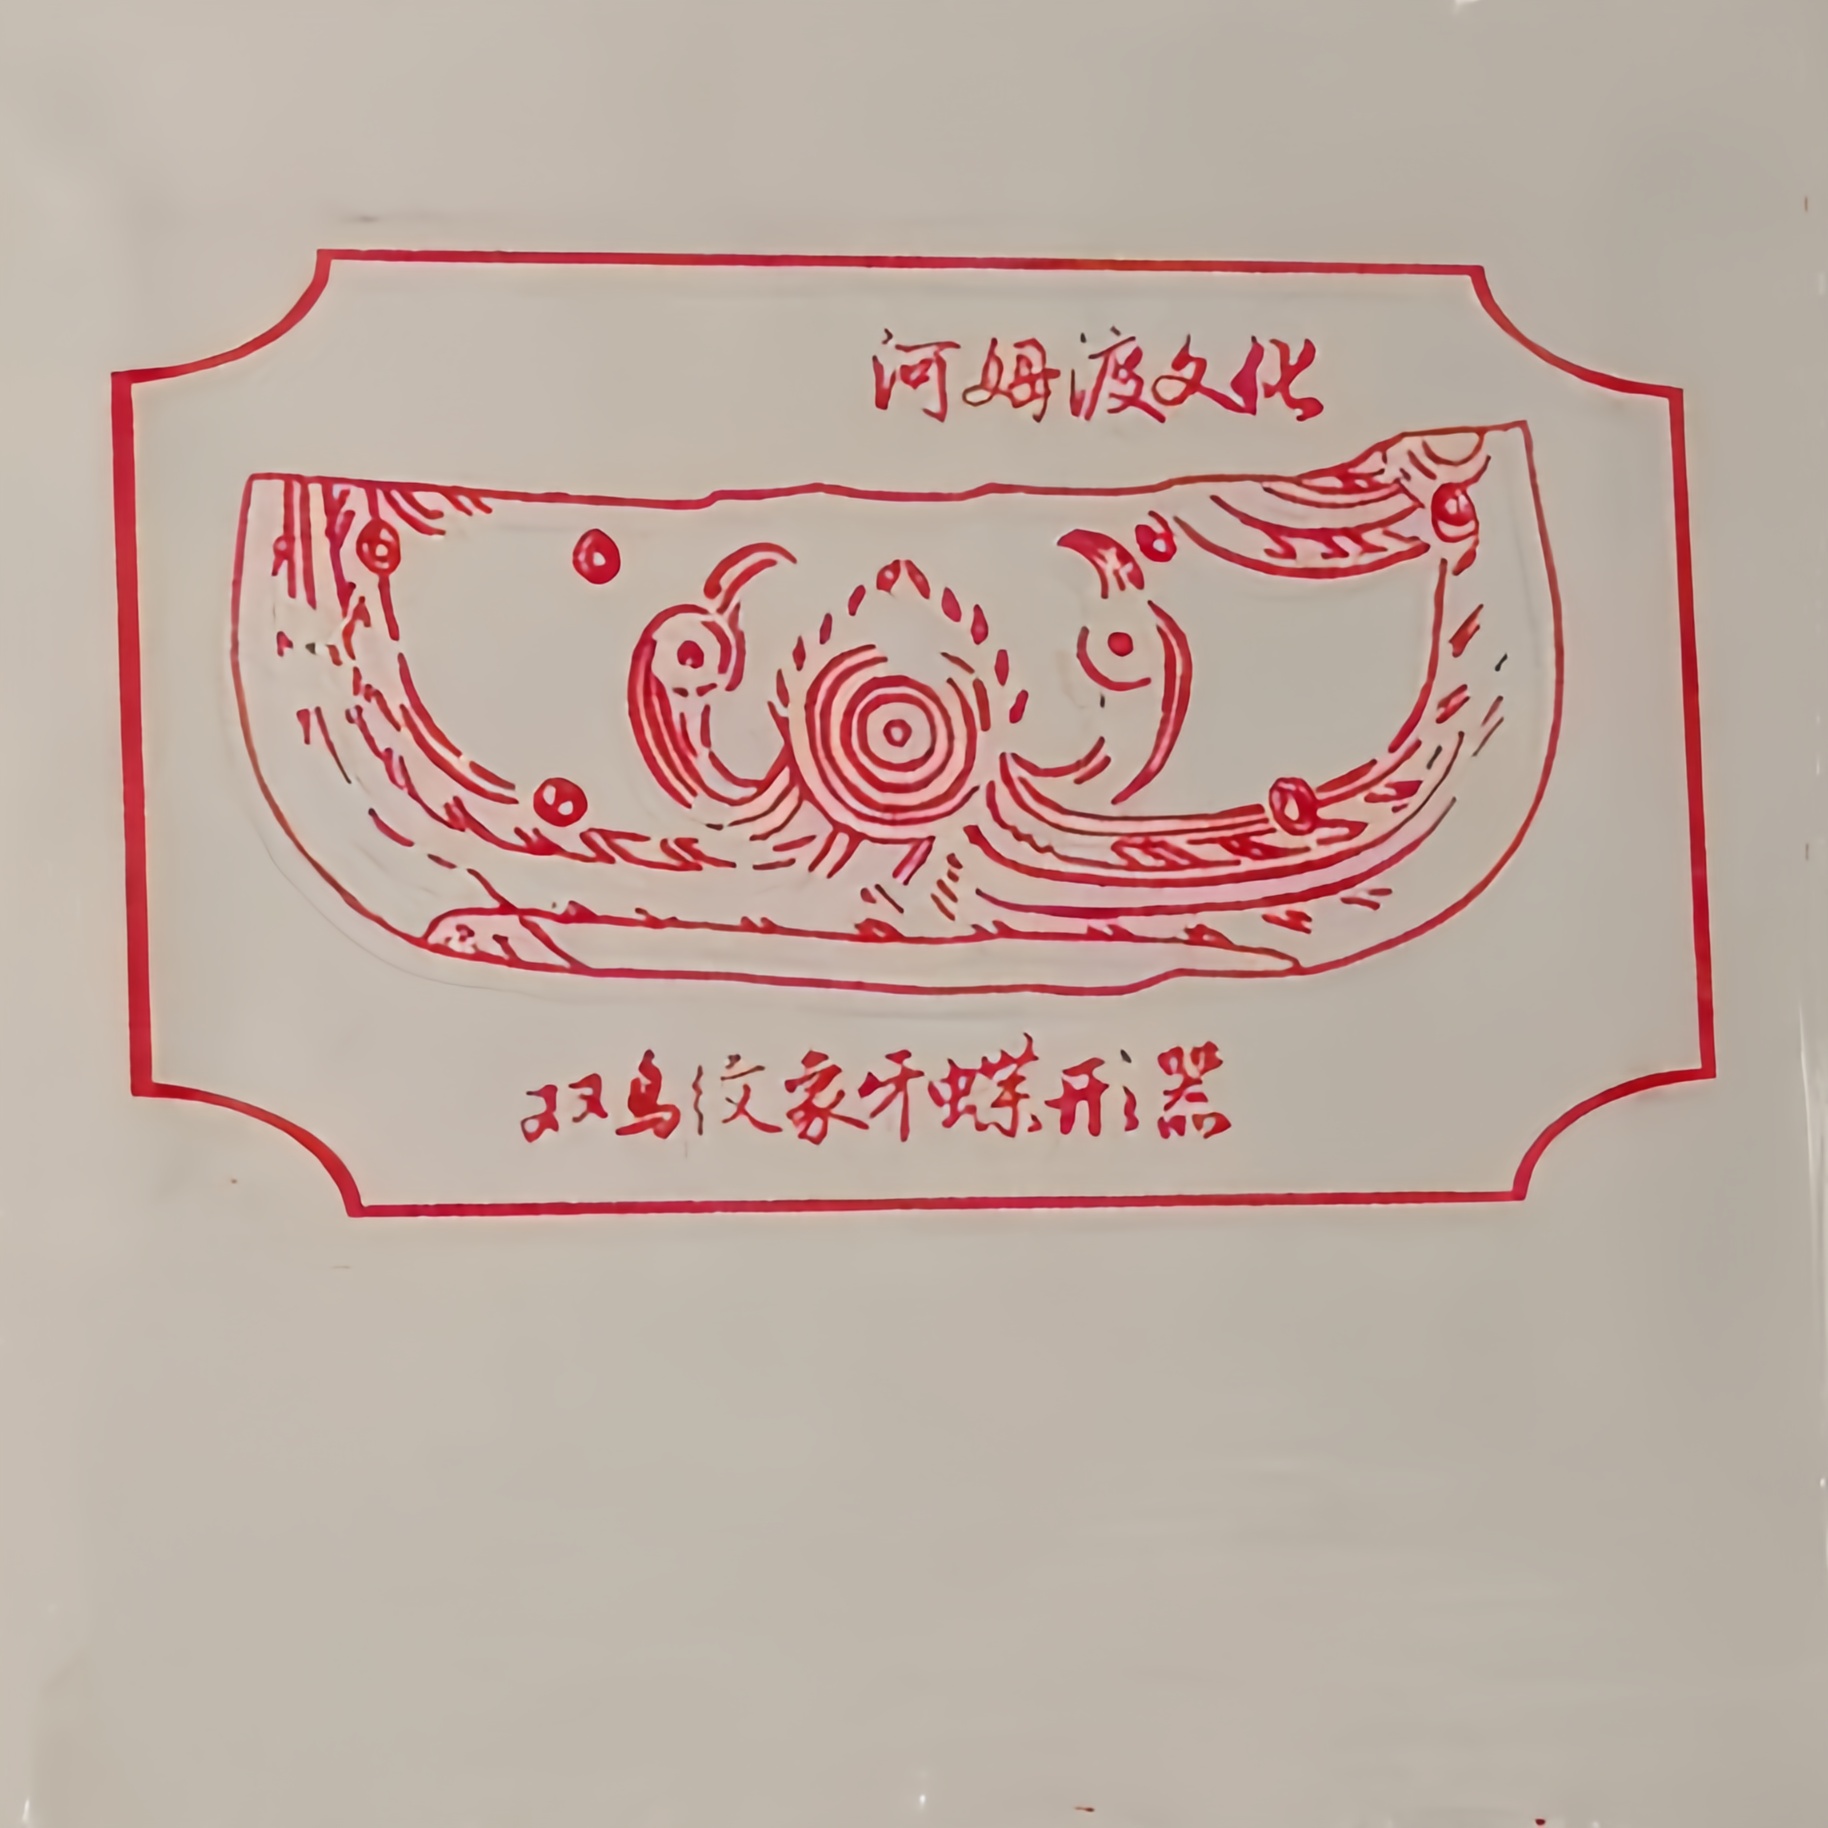 河姆渡文化
双鸟纹象牙蝶形器